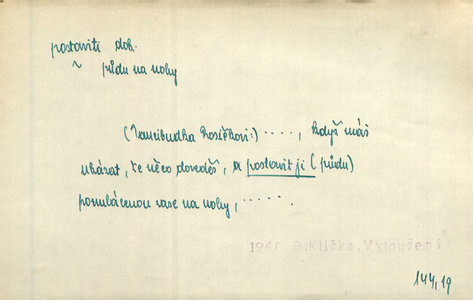 postaviti dok.
~ půdu na nohy
(Zamibudka Kosičkovi:) ...., když máš
ukázat, že něco dovedeš, a postavit ji (půdu)
pomuláčenou zase na nohy, .....
1946 B.Klička, Vytoužení
144,19